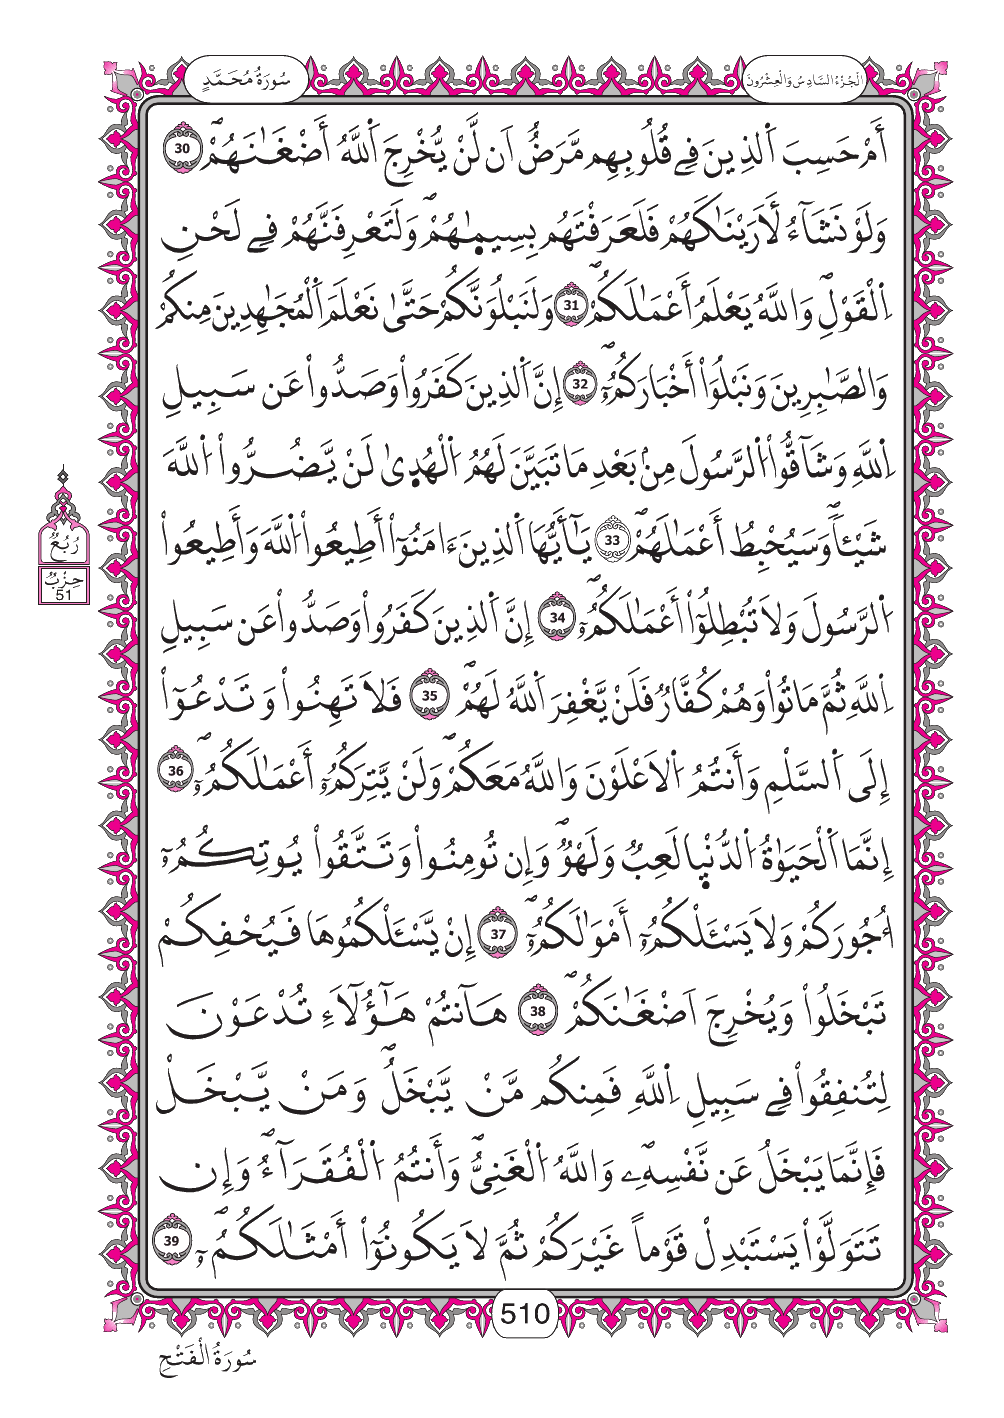 سُورَةُ مُحَمَّدٍ
اَلْجُزْءُ السَّادِسُ وَالْعِشْرُونَ
أَمْ حَسِبَ اَ۬لذِينَ فِے قُلُوبِهِم مَّرَضٌ اَن لَّنْ يُّخْرِجَ اَ۬للَّهُ أَضْغَٰنَهُمْۖ 30
وَلَوْ نَشَآءُ لَأَرَيْنَٰكَهُمْ فَلَعَرَفْتَهُم بِسِيمٰ۪هُمْۖ وَلَتَعْرِفَنَّهُمْ فِے لَحْنِ
اِ۬لْقَوْلِۖ وَاللَّهُ يَعْلَمُ أَعْمَٰلَكُمْۖ 31 وَلَنَبْلُوَنَّكُمْ حَتَّىٰ نَعْلَمَ اَ۬لْمُجَٰهِدِينَ مِنكُمْ
وَالصَّٰبِرِينَ وَنَبْلُوَاْ أَخْبَارَكُمُۥٓۖ 32 إِنَّ اَ۬لذِينَ كَفَرُواْ وَصَدُّواْ عَن سَبِيلِ
اِ۬للَّهِ وَشَآقُّواْ اُ۬لرَّسُولَ مِنۢ بَعْدِ مَا تَبَيَّنَ لَهُمُ اُ۬لْهُد۪ىٰ لَنْ يَّضُرُّواْ اُ۬للَّهَ
شَيْـٔاًۖ وَسَيُحْبِطُ أَعْمَٰلَهُمْۖ 33 يَٰٓأَيُّهَا اَ۬لذِينَ ءَامَنُوٓاْ أَطِيعُواْ اُ۬للَّهَ وَأَطِيعُواْ
اُ۬لرَّسُولَ وَلَا تُبْطِلُوٓاْ أَعْمَٰلَكُمُۥٓۖ 34 إِنَّ اَ۬لذِينَ كَفَرُواْ وَصَدُّواْ عَن سَبِيلِ
اِ۬للَّهِ ثُمَّ مَاتُواْ وَهُمْ كُفَّارٌ فَلَنْ يَّغْفِرَ اَ۬للَّهُ لَهُمْۖ 35 فَلَا تَهِنُواْ وَتَدْعُوٓاْ
إِلَى اَ۬لسَّلْمِ وَأَنتُمُ اُ۬لَاعْلَوْنَ وَاللَّهُ مَعَكُمْۖ وَلَنْ يَّتِرَكُمُۥٓ أَعْمَٰلَكُمُۥٓۖ 36
إِنَّمَا اَ۬لْحَيَوٰةُ اُ۬لدُّنْي۪ا لَعِبٌ وَلَهْوٌۖ وَإِن تُومِنُواْ وَتَتَّقُواْ يُوتِكُمُۥٓ
أُجُورَكُمْ وَلَا يَسْـَٔلْكُمُۥٓ أَمْوَٰلَكُمُۥٓۖ 37 إِنْ يَّسْـَٔلْكُمُوهَا فَيُحْفِكُمْ
تَبْخَلُواْ وَيُخْرِجَ اَضْغَٰنَكُمْۖ 38 هَآنتُمْ هَٰٓؤُلَآءِ تُدْعَوْنَ
لِتُنفِقُواْ فِے سَبِيلِ اِ۬للَّهِ فَمِنكُم مَّنْ يَّبْخَلُۖ وَمَنْ يَّبْخَلْ
فَإِنَّمَا يَبْخَلُ عَن نَّفْسِهِۦۖ وَاللَّهُ اُ۬لْغَنِيُّۖ وَأَنتُمُ اُ۬لْفُقَرَآءُۖ وَإِن
تَتَوَلَّوْاْ يَسْتَبْدِلْ قَوْماً غَيْرَكُمْ ثُمَّ لَا يَكُونُوٓاْ أَمْثَٰلَكُمُۥٓۖ 39
رُبُعُ
حِزْبُ
51
510
سُورَةُ الْفَتْحِ